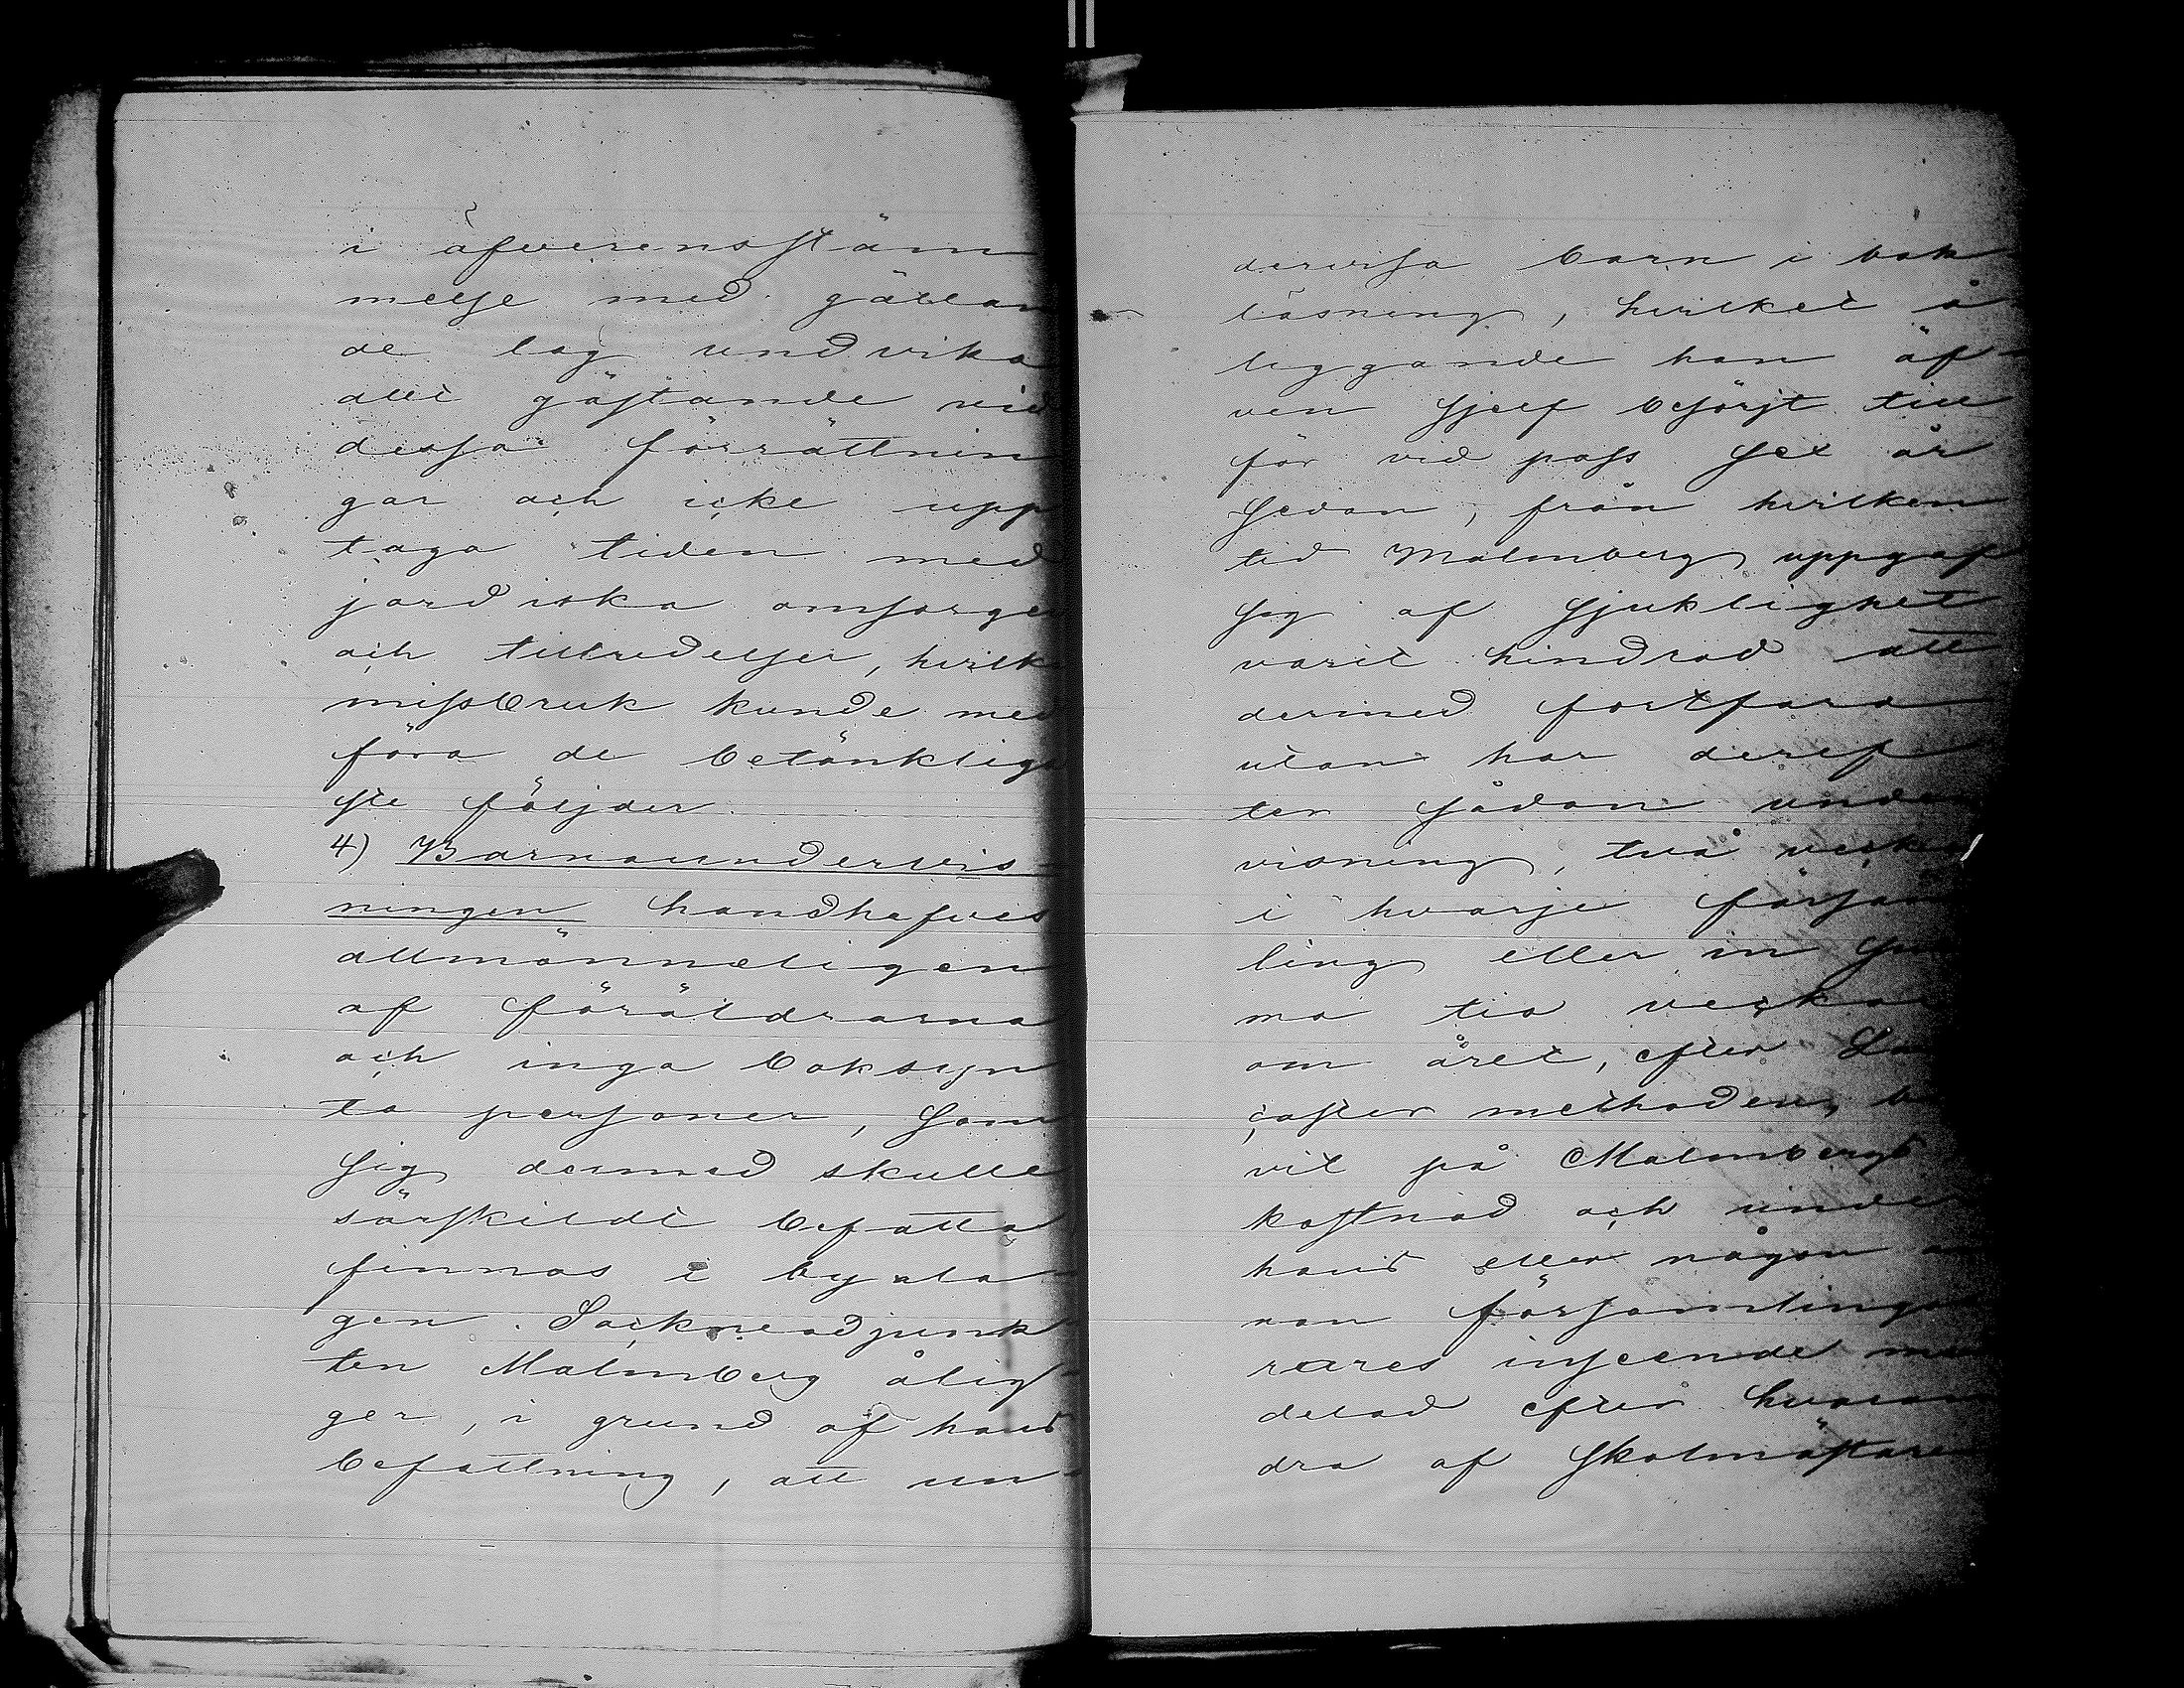 i åfverensstäm
melse med gällan
de lag undvika
allt gästande vid
dessa förrättnin
gar och icke upp
taga tiden med
jordiska omsorger
och tillredelser, hvilka
missbruk kunde med
föra de betänkliga
ste följder.
4) Barnaundervis-
ningen handhafves
allmänneligen
af föräldrarna
och inga boksyn
ta personer, som
sig dermed skulle
särskildt befatta
finnas i bygda
gen. Sockneadjunk
ten Malmberg ålig-
ger, i grund af hans
befattning, att un-
dervisa barn i bok
läsning, hvilket å
liggande han äf-
ven sjelf besörjt till
för vid pass sex år
sedan, från hvilken
tid Malmberg uppgaf
sig af sjuklighet
varit hindrad att
dermed fortfara
utan har deref
ter sådan under
visning, två veckor
i hvarje försam
ling eller in sum
ma tio veckor
om året, efter Lan
caster methoden, b
vit på Malmbergs
kostnad och under
hans eller någon an
nan församlingslä
rares inseende med
delad efter hvaran
dra af Skolmästaren